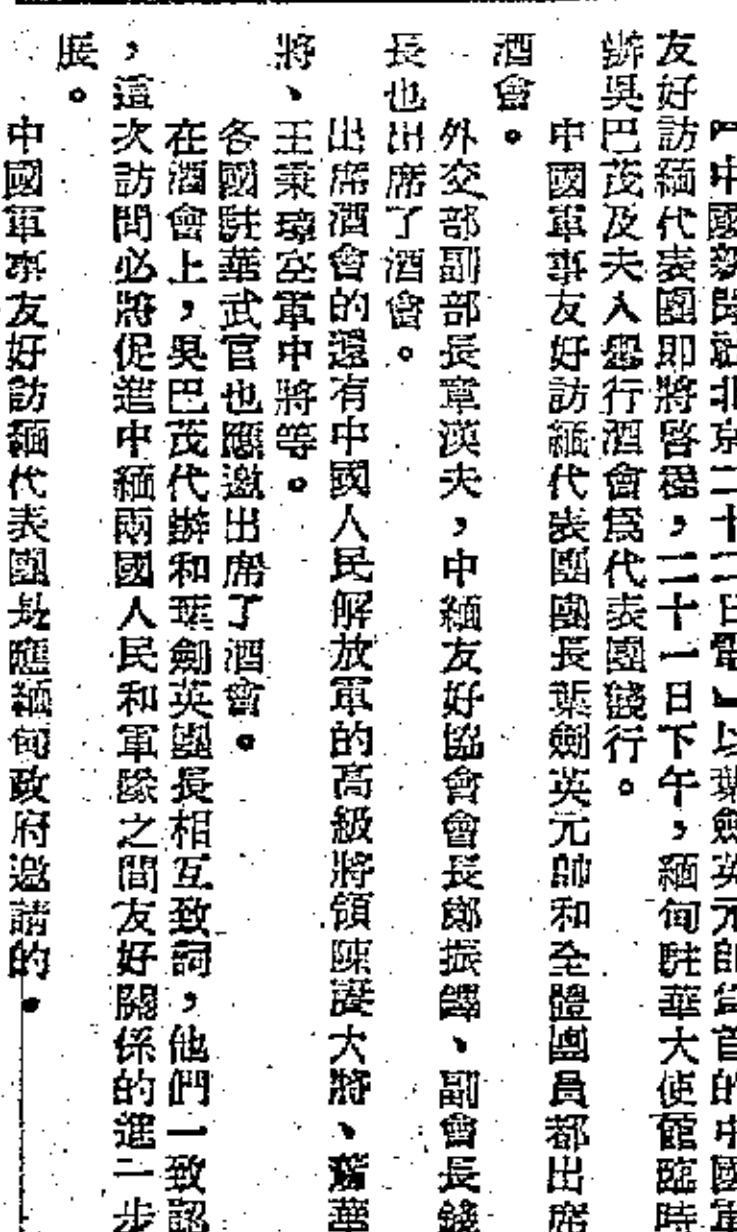 「中國新聞社北京二十二日電」以葉劍英元帥爲首的中國軍
友好訪緬代表團即將啓程，二十一日下午，緬甸駐華大使館臨時
辦吳巴茂及夫人舉行酒會爲代表團餞行。
中國軍事友好訪緬代表團團長葉劍英元帥和全體團員都出席
酒會。
外交部副部長章漢夫，中緬友好協會會長鄭振鐸、副會長錢
長也出席了酒會。
出席酒會的還有中國人民解放軍的高級將領陳賡大將、蕭華
將、王秉璋空軍中將等。
各國駐華武官也應邀出席了酒會。
在酒會上，吳巴茂代辦和葉劍英團長相互致詞，他們一致認
，這次訪問必將促進中緬兩國人民和軍隊之間友好關係的進一步
展。
中國軍事友好訪緬代表團是應緬甸政府邀請的。